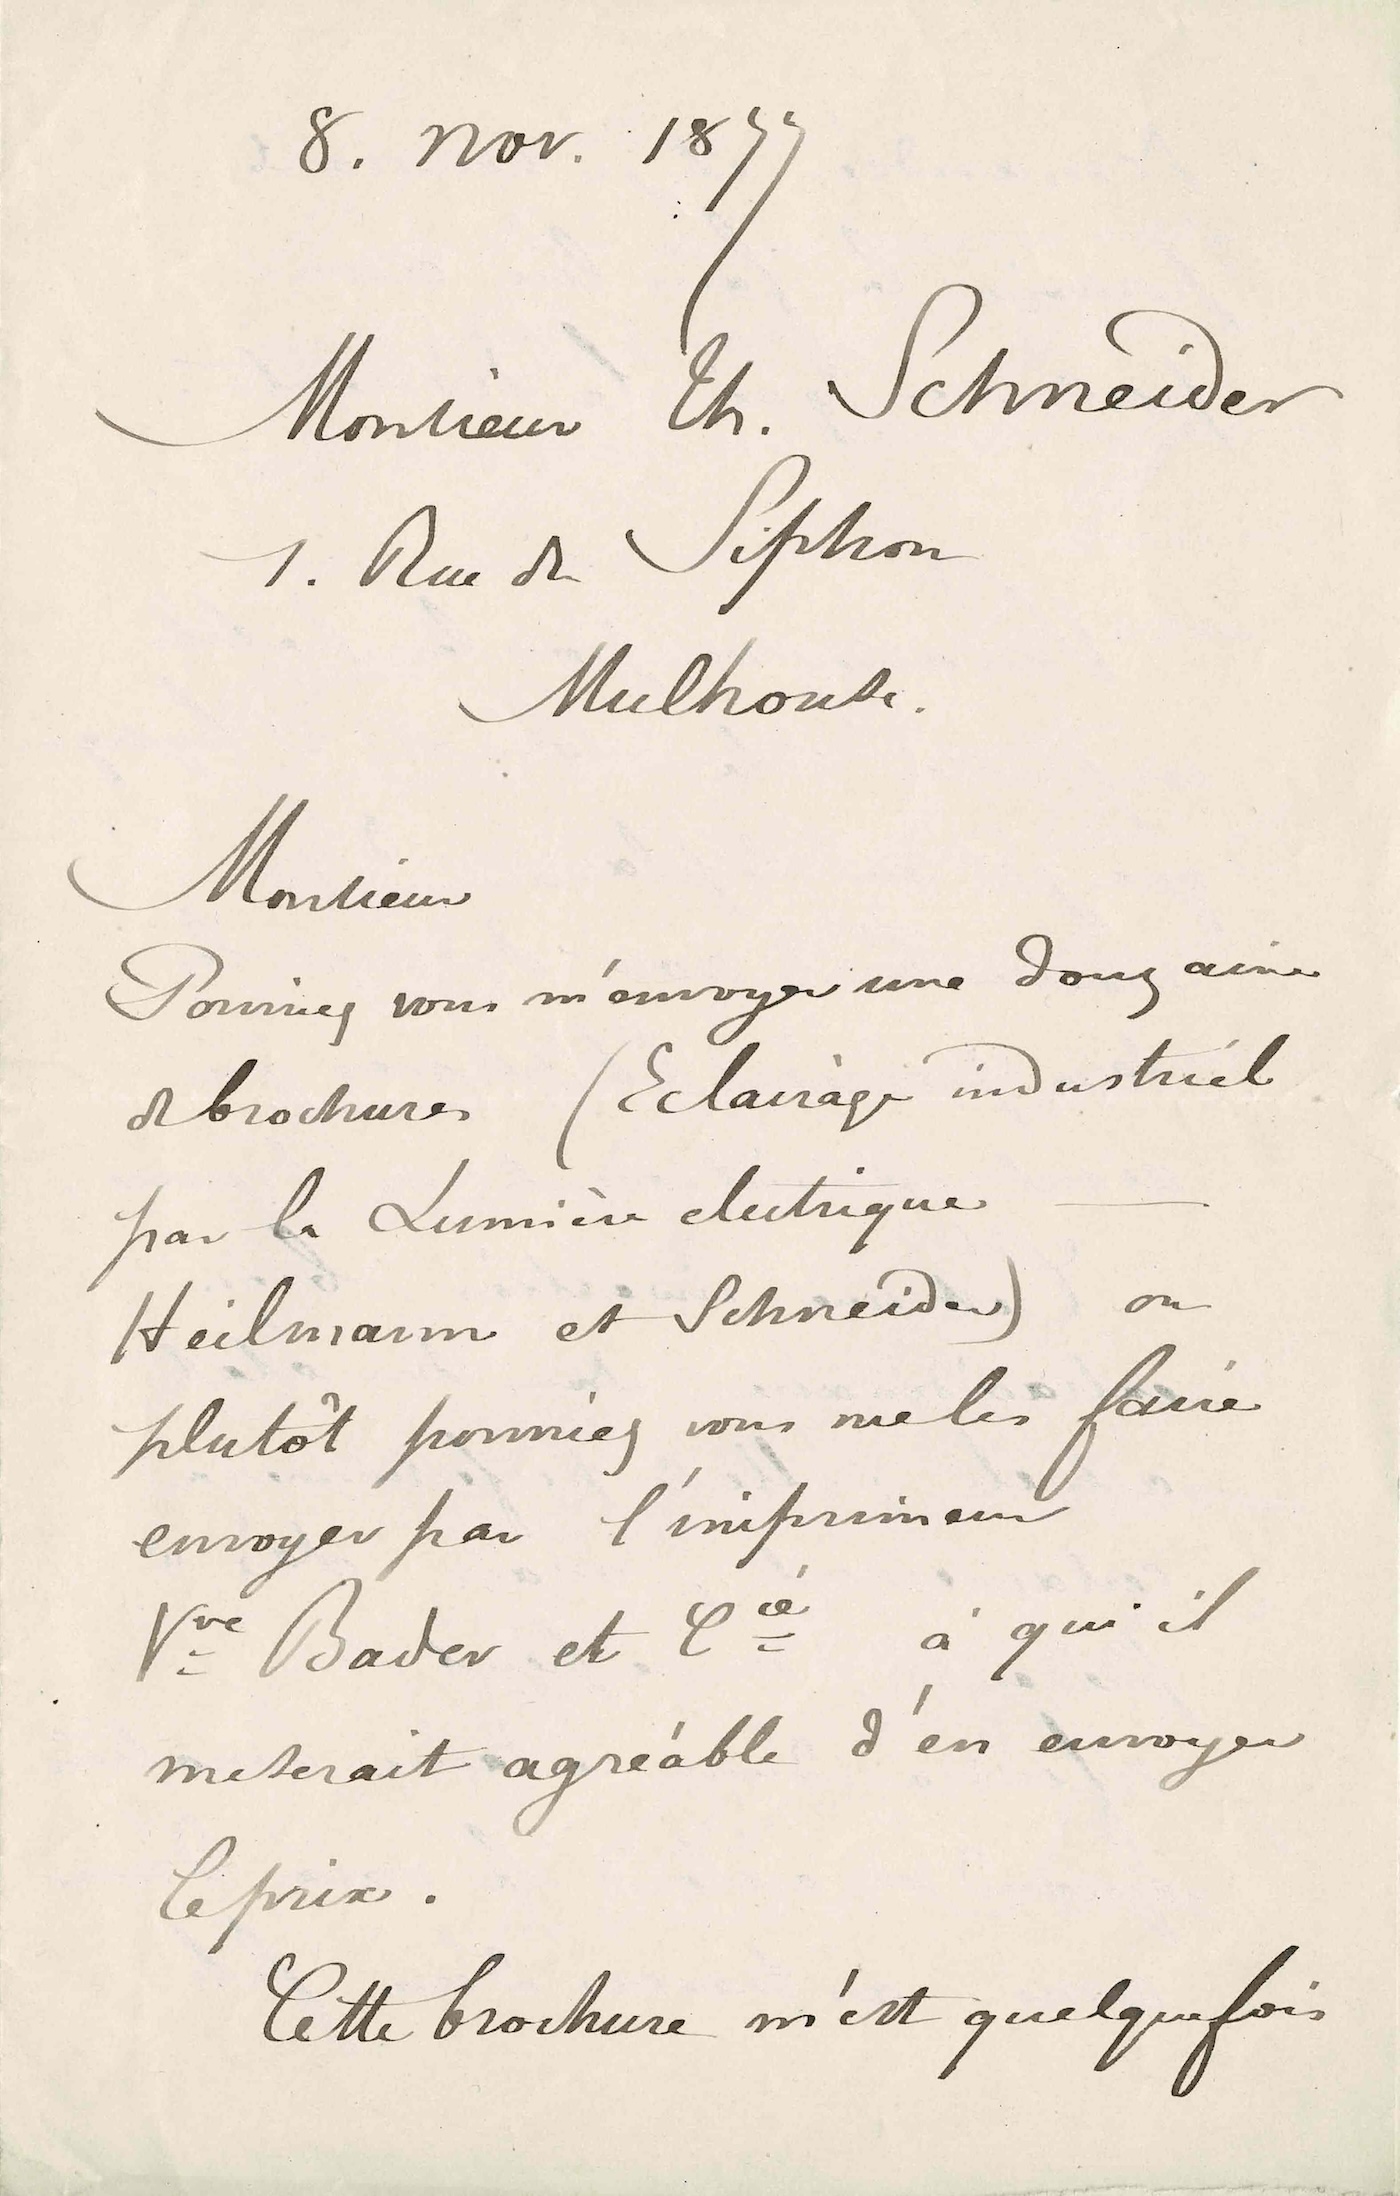 8. Nov. 1877
Monsieur Th. Schneider
1. Rue du Siphon
Mulhouse.
Monsieur
Pourriez vous m'envoyer une douzaine
de brochures (Eclairage industriel
par la Lumière electrique —
Heilmann et Schneider) ou
plutôt pourriez vous me les faire
envoyer par l'imprimeur
Vve Bader et Cie à qui il
me serait agréable d'en envoyer
le prix.
Cette brochure m'est quelquefois